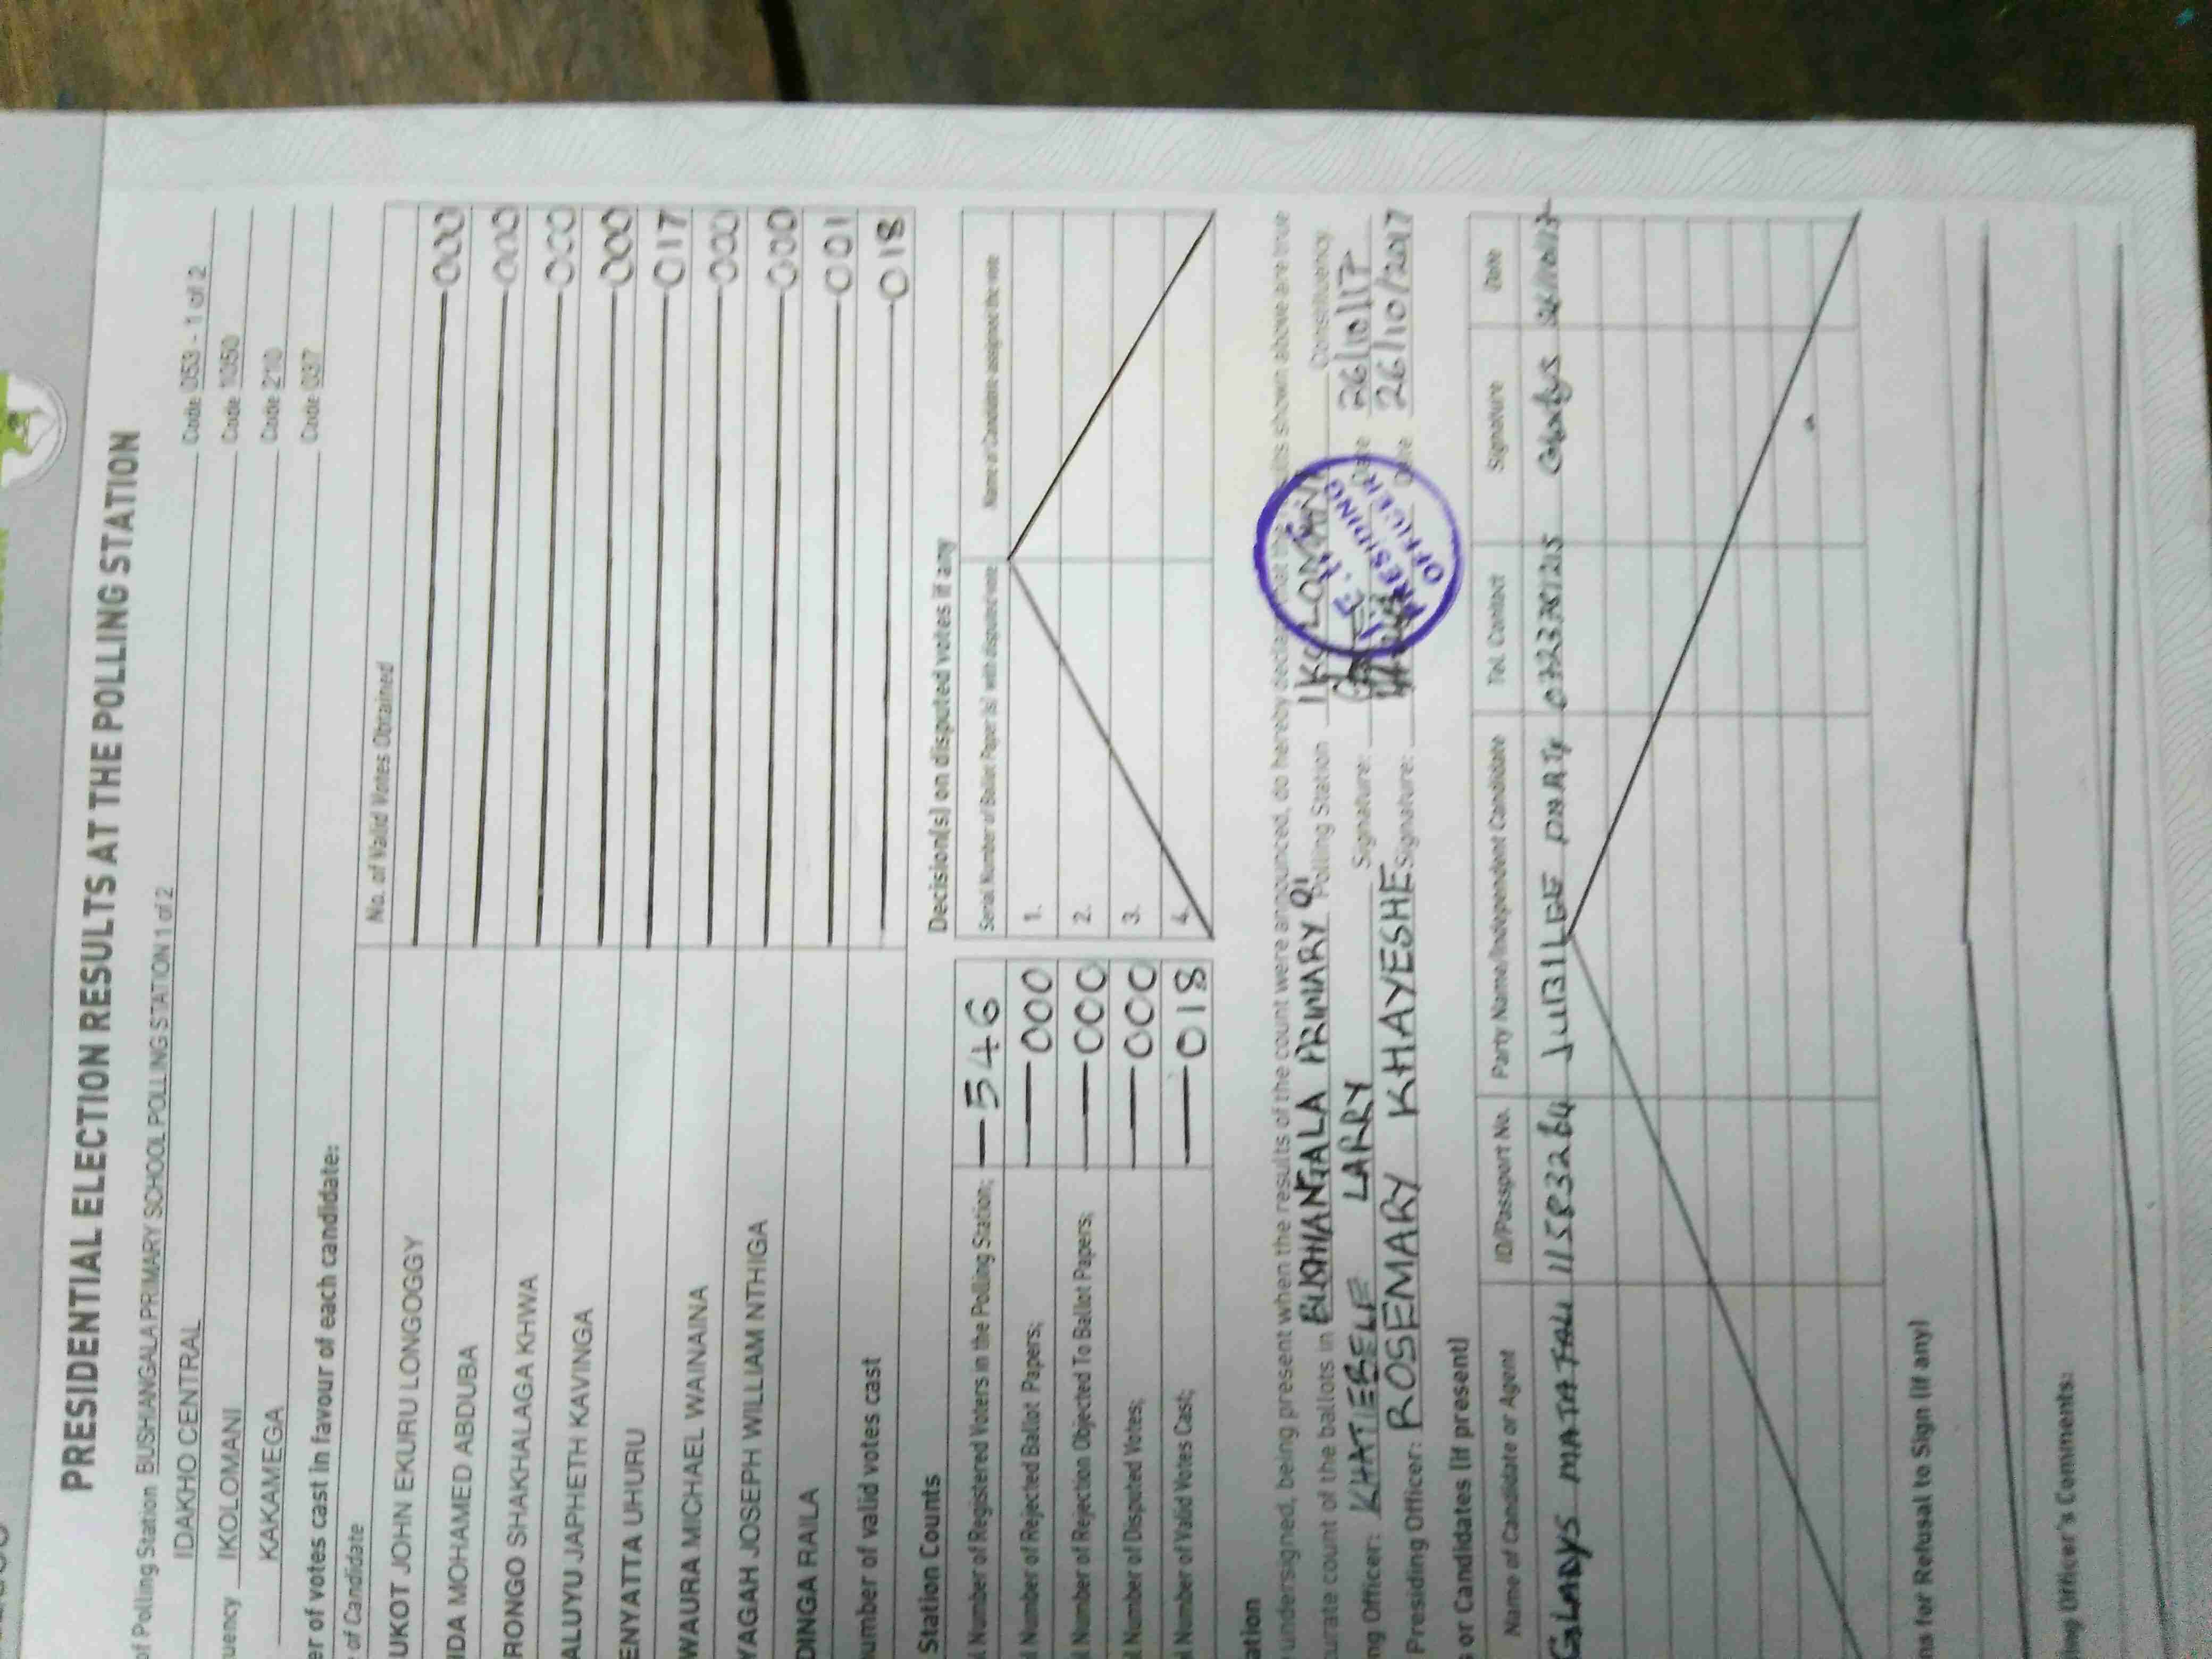 PRESIDENTIAL ELECTION RESULTS AT THE POLLING STATION
of Polling Station BUSHANGALA PRIMARY SCHOOL POLLING STATION 1 of 2 Code 053 - 1 of 2
IDAKHO CENTRAL Code 1050
uency IKOLOMANI Code 210
KAKAMEGA Code 037
er of votes cast in favour of each candidate:
of Candidate No. of Valid Votes Obtained
UKOT JOHN EKURU LONGOGGY 000
IDA MOHAMED ABDUBA 000
RONGO SHAKHALAGA KHWA 000
ALUYU JAPHETH KAVINGA 000
ENYATTA UHURU 017
WAURA MICHAEL WAINAINA 000
YAGAH JOSEPH WILLIAM NTHIGA 000
DINGA RAILA 001
umber of valid votes cast 018
Station Counts
l Number of Registered Voters in the Polling Station; 546
l Number of Rejected Ballot Papers; 000
l Number of Rejection Objected To Ballot Papers; 000
l Number of Disputed Votes; 000
l Number of Valid Votes Cast; 018
Decision(s) on disputed votes if any
Serial Number of Ballot Paper (s) with disputed vote Name of Candidate assigned the vote
1.
2.
3.
4.
ation
undersigned, being present when the results of the count were announced, do hereby declare that the results shown above are true
urate count of the ballots in BUSHIANGALA PRIMARY 01 Polling Station IKOLOMANI Constituency
ng Officer: KHATIEBELE LARRY Signature: Date 26/10/17
Presiding Officer: ROSEMARY KHAYESHE Signature: Date 26/10/2017
PRESIDING
OFFICER
s or Candidates (if present)
Name of Candidate or Agent ID/Passport No. Party Name/Independent Candidate Tel. Contact Signature Date
GLADYS JUBILEE PARTY Gladys
ns for Refusal to Sign (if any)
ing Officer's Comments: